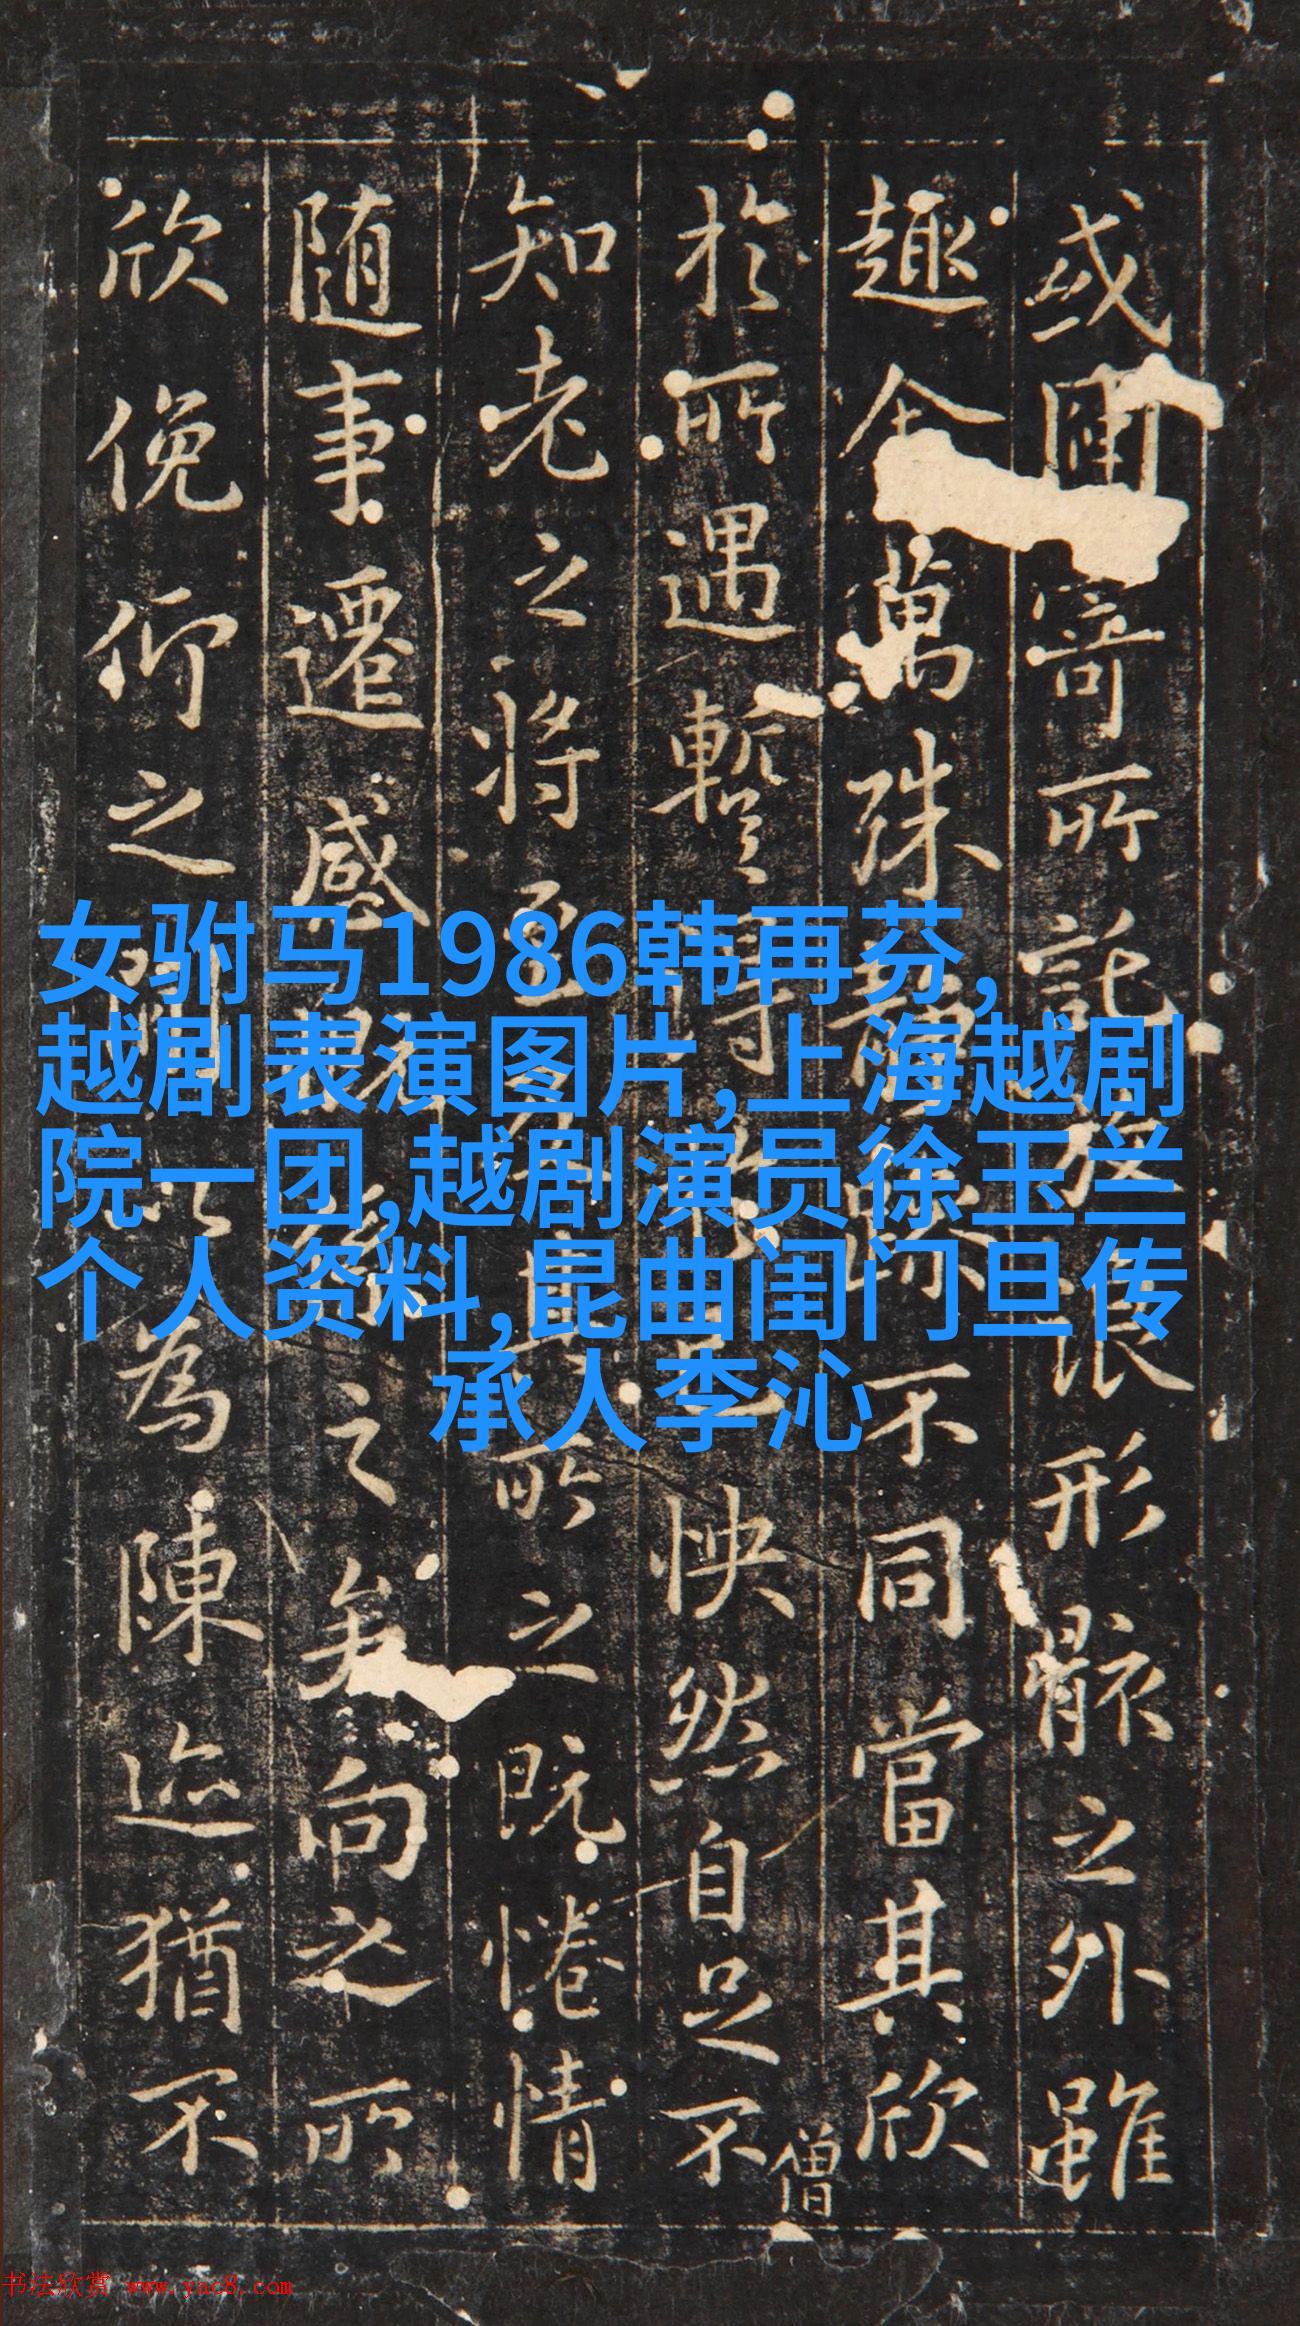 或因寄所託放浪形骸之外雖
趣舍萬殊靜躁不同當其欣
於所遇暫得於己怏然自足不
僧
知老之將至及其所之既惓情
随事遷感慨係之矣向之所
欣俛仰之閒以為陳迹猶不
女驸马1986韩再芬,
越剧表演图片,上海越剧
院一团,越剧演员徐玉兰
个人资料,昆曲闺门旦传
承人李沁
书法欣赏 www.yac8.com